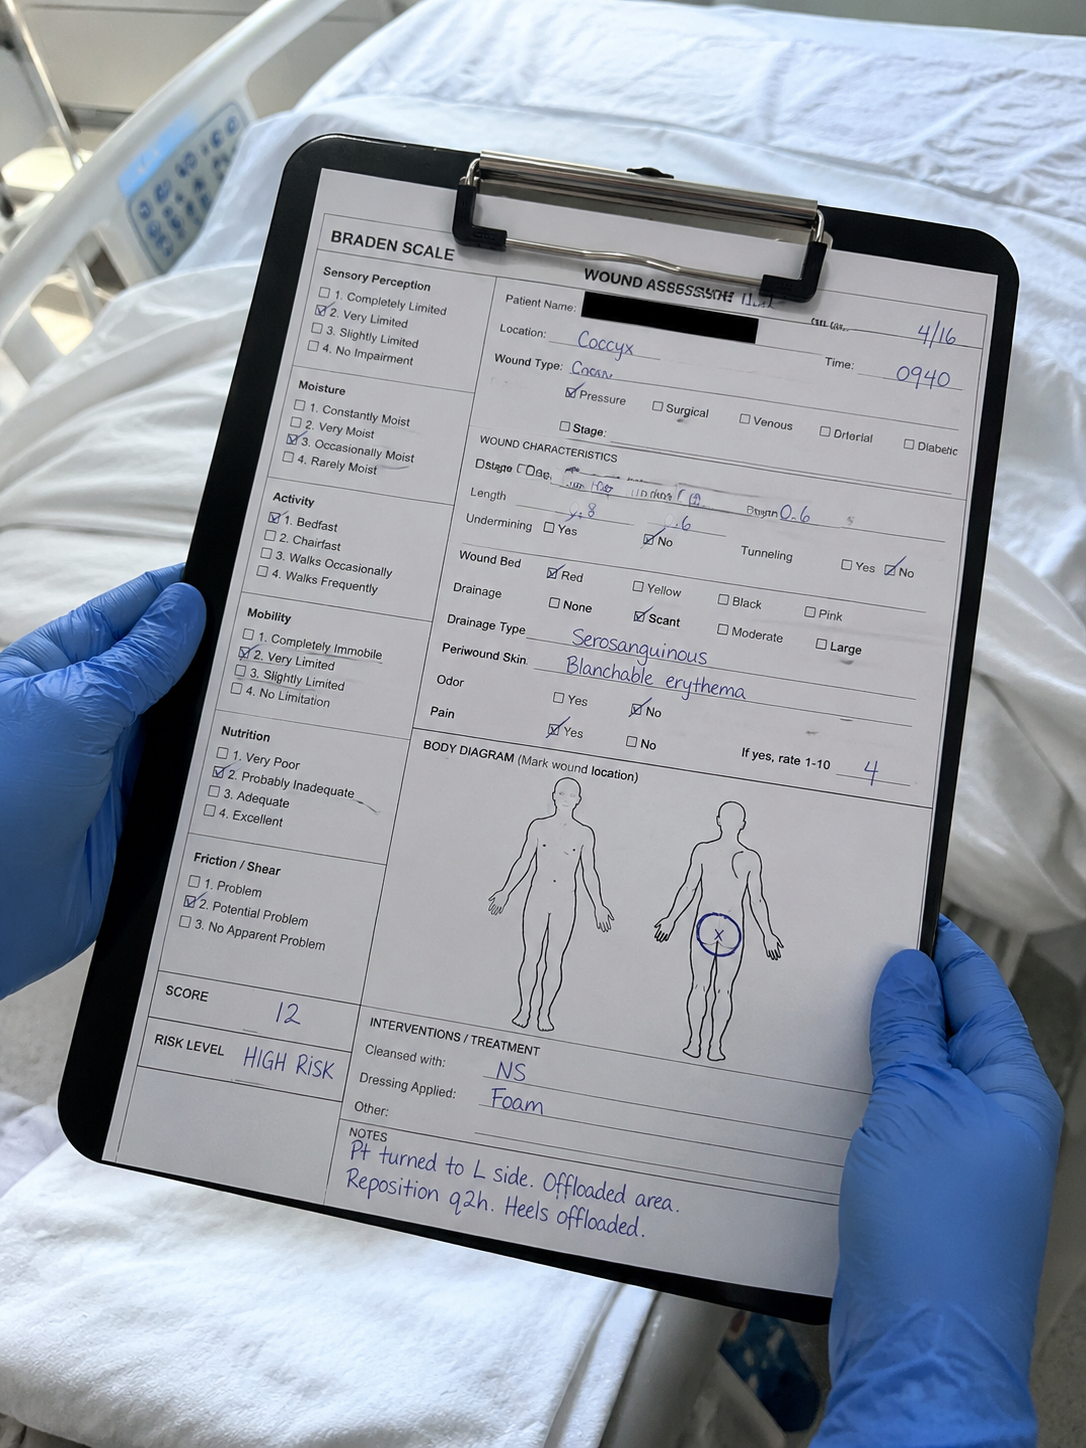 BRADEN SCALE
Sensory Perception
1. Completely Limited
2. Very Limited
3. Slightly Limited
4. No Impairment
Moisture
1. Constantly Moist
2. Very Moist
3. Occasionally Moist
4. Rarely Moist
Activity
1. Bedfast
2. Chairfast
3. Walks Occasionally
4. Walks Frequently
Mobility
1. Completely Immobile
2. Very Limited
3. Slightly Limited
4. No Limitation
Nutrition
1. Very Poor
2. Probably Inadequate
3. Adequate
4. Excellent
Friction / Shear
1. Problem
2. Potential Problem
3. No Apparent Problem
SCORE 12
RISK LEVEL HIGH RISK
WOUND
Patient Name:
4/16
Location: Coccyx
Time: 0940
Wound Type:
Pressure Surgical Venous Drterial Diabetic
Stage:
WOUND CHARACTERISTICS
0.6
Length .8 .6
Undermining Yes No Tunneling Yes No
Wound Bed Red Yellow Black Pink
Drainage None Scant Moderate Large
Drainage Type Serosanguinous
Periwound Skin. Blanchable erythema
Odor Yes No
Pain Yes No If yes, rate 1-10 4
BODY DIAGRAM (Mark wound location)
X
INTERVENTIONS / TREATMENT
Cleansed with: NS
Dressing Applied: Foam
Other:
NOTES
Pt turned to L side. Offloaded area.
Reposition q2h. Heels offloaded.